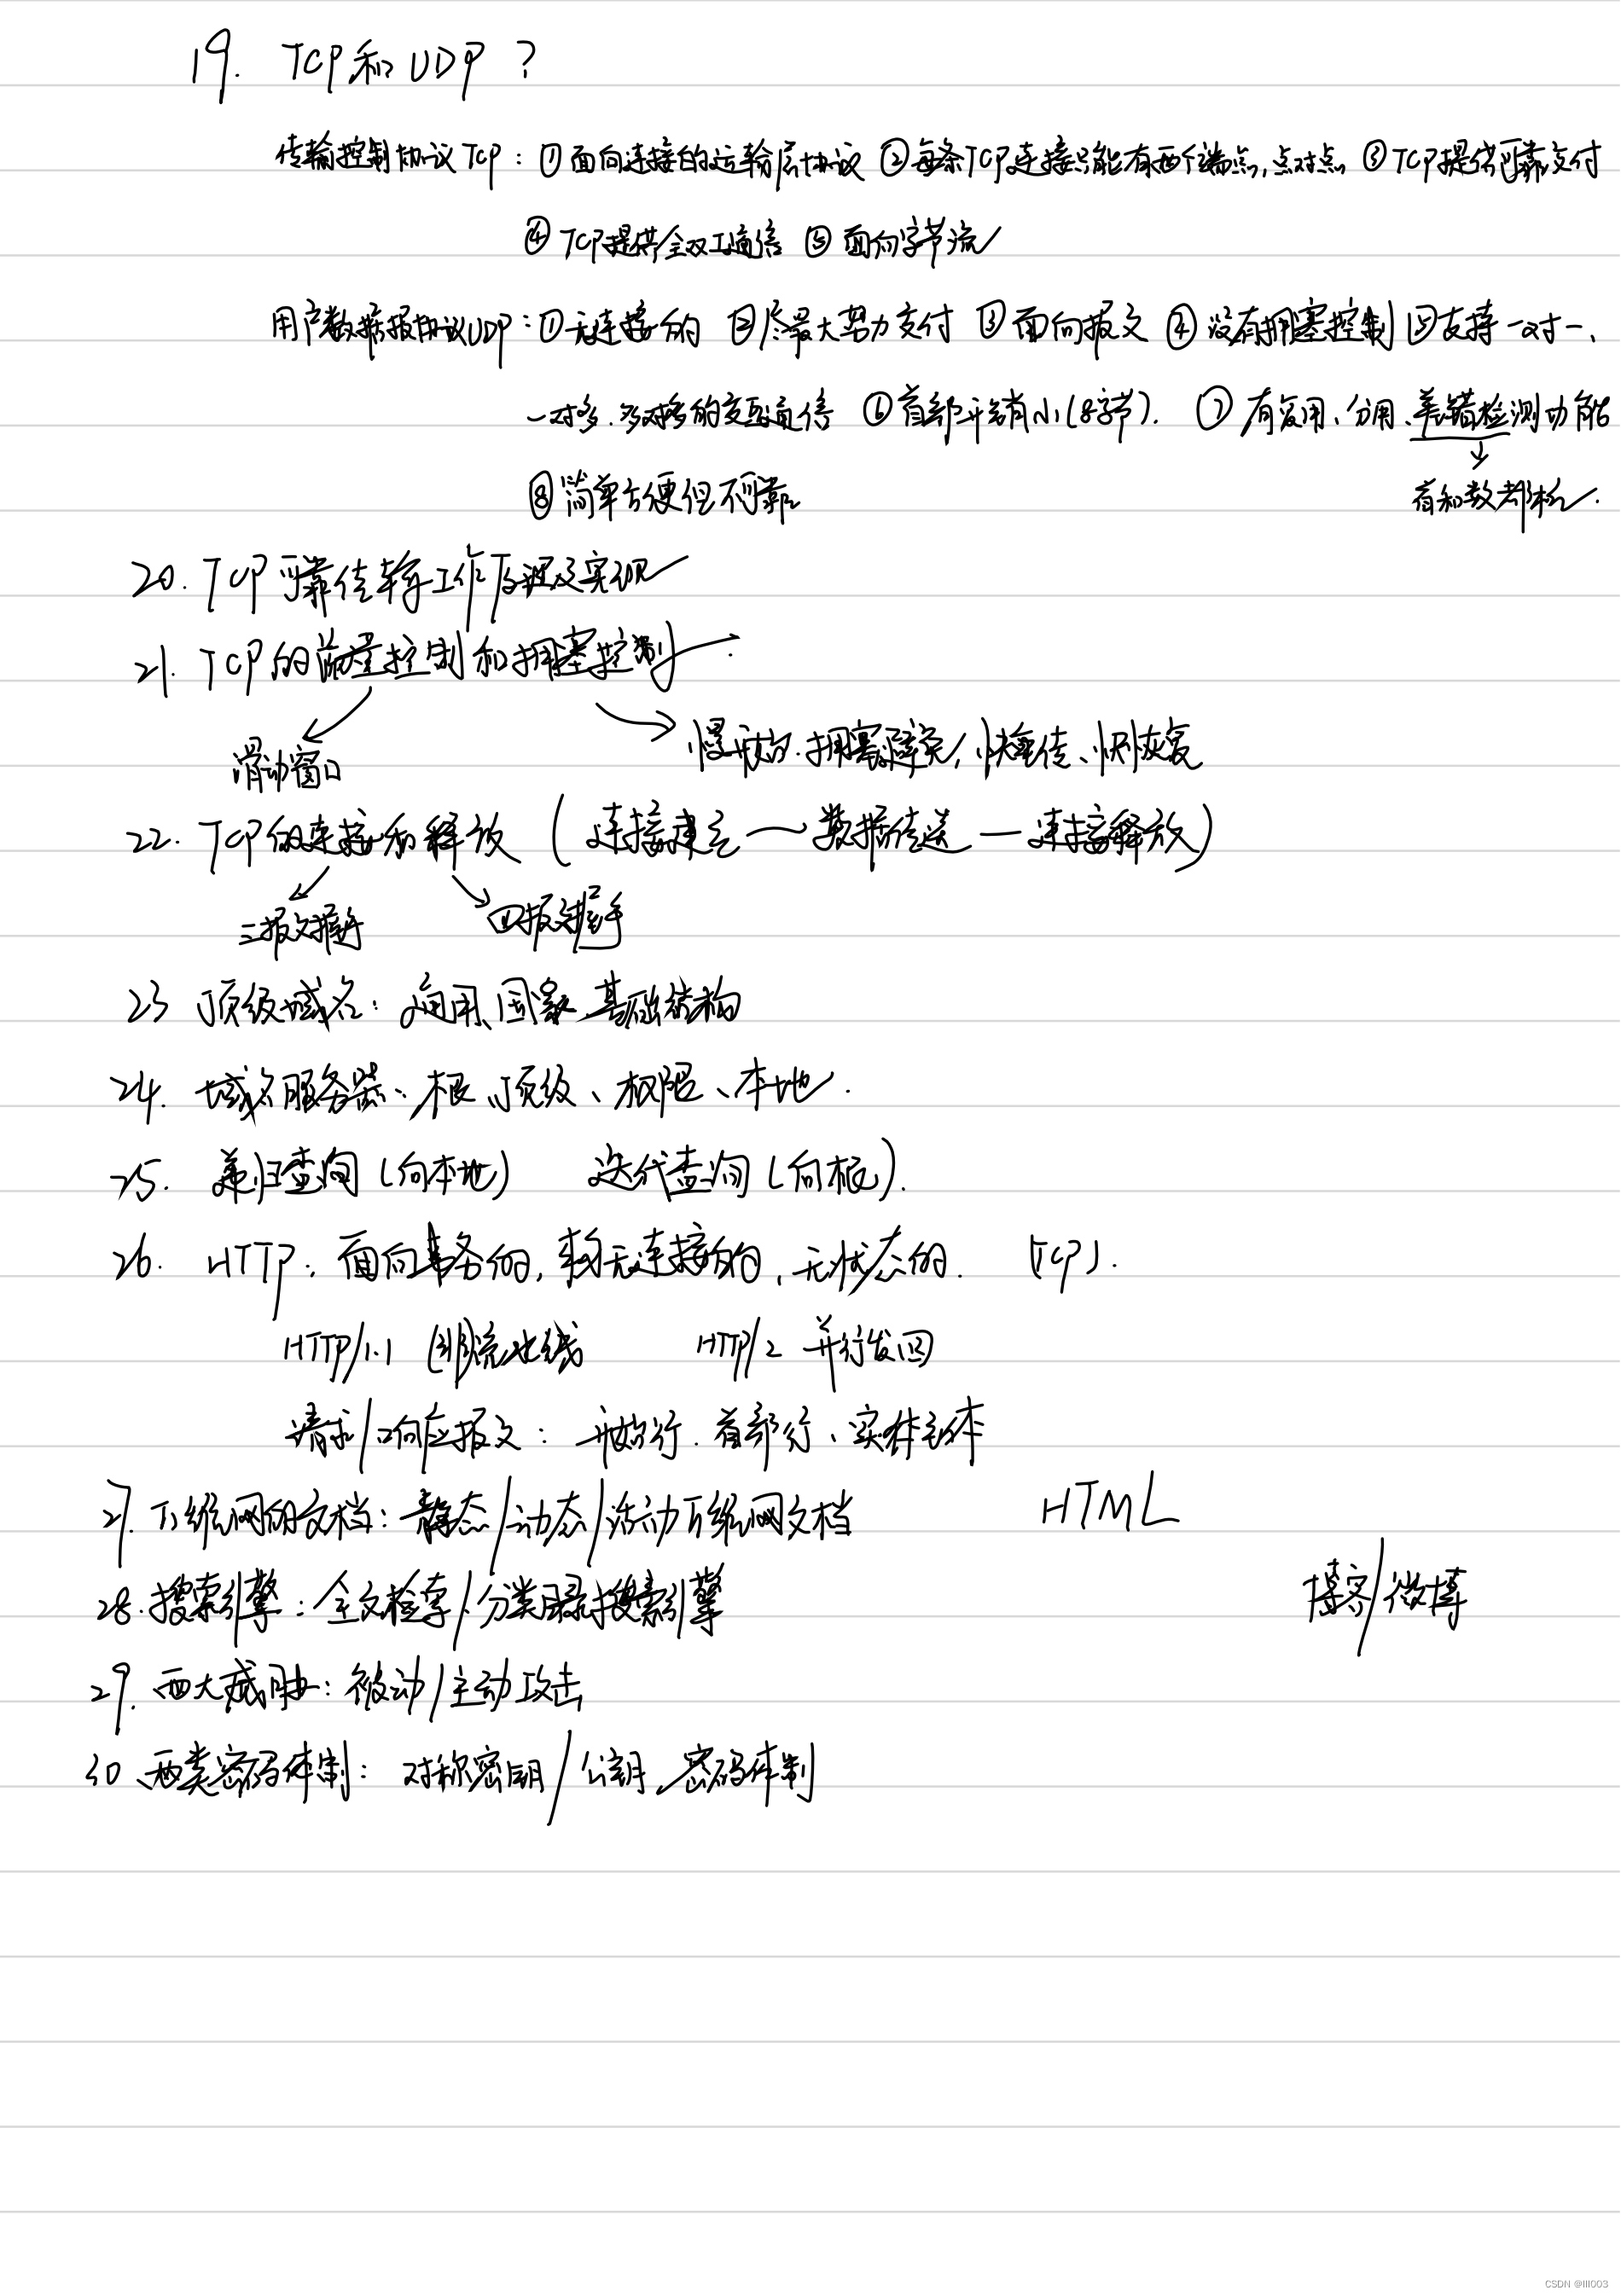 19. TCP和UDP？
传输控制协议TCP：①面向连接的运输层协议 ②每条TCP连接只能有两个端点，点对点 ③TCP提供可靠交付
④TCP提供全双工通信 ⑤面向字节流
用户数据报协议UDP：①无连接的 ②尽最大努力交付 ③面向报文 ④没有拥塞控制 ⑤支持一对一、
一对多、多对多的交互通信 ⑥首部开销小(8字节). ⑦有复用、分用、差错检测功能
⑧简单方便但不可靠 首和数都检.
20. TCP可靠传输工作原理及实现
21. TCP的流量控制和拥塞控制.
滑动窗口 慢开始、拥塞避免、快重传、快恢复
22. TCP的连接和释放（连接建立—数据传送—连接释放）
三报文握手 四报文握手
23 顶级域名：通用、国家、基础结构
24. 域名服务器：根、顶级、权限、本地.
25. 递归查询(向本地) 迭代查询(向根).
26. HTTP：面向事务的，无连接的，无状态的. (TCP).
HTTP/1.1 (非)流水线 HTTP/2 并行发回
请求/响应报文：开始行、首部行、实体主体
27. 万维网的文档：静态/动态/活动万维网文档 HTML
28. 搜索引擎：全文检索/分类目录搜索引擎 博客/微博
29. 两大威胁：被动/主动攻击
30、两类密码体制：对称密钥/公钥 密码体制
CSDN @lll003